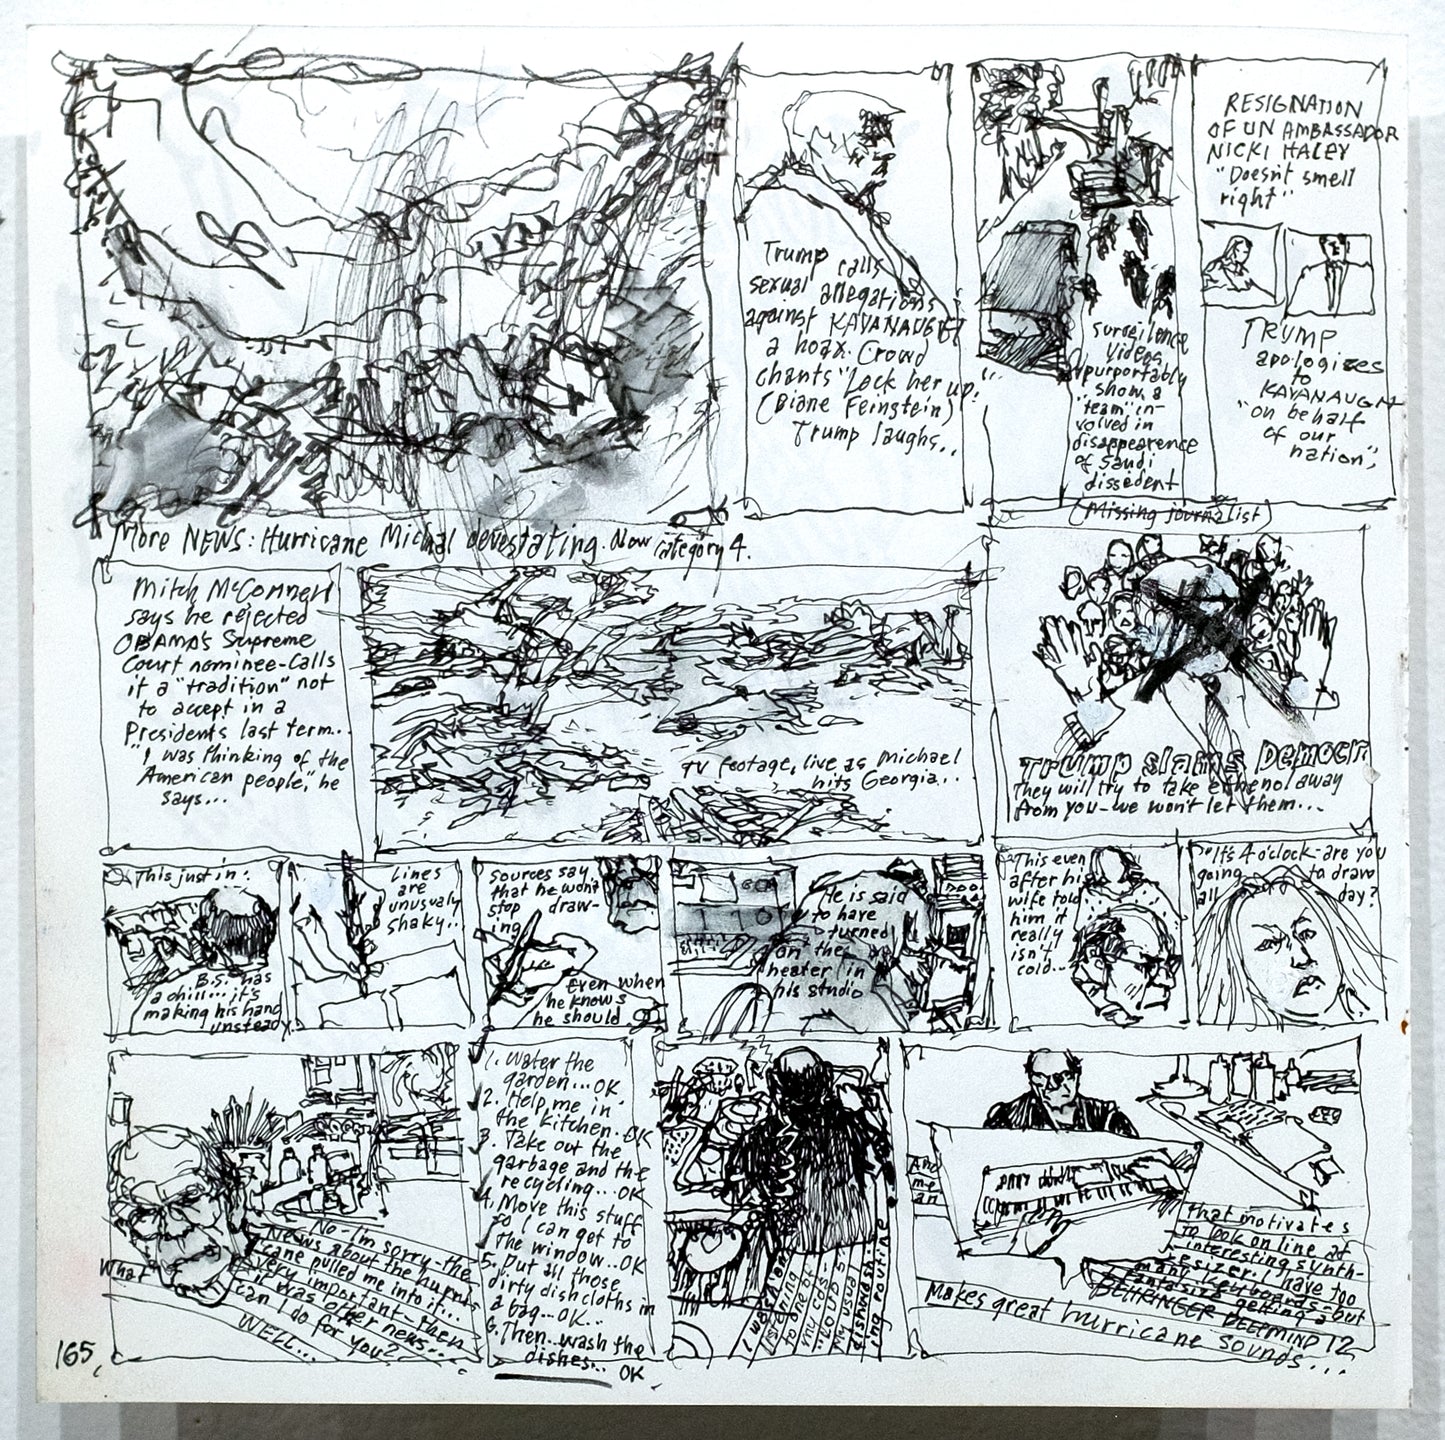 Trump calls
sexual allegations
against KAVANAUGH
a hoax. Crowd
chants "Lock her up."
(Diane Feinstein)
Trump laughs..
surveilence
videos
purportably
show a
"team" in-
volved in
disappearence
of Saudi
dissedent
(Missing journalist)
RESIGNATION
OF UN AMBASSADOR
NICKI HALEY
"Doesn't smell
right"
TRUMP
apologizes
to
KAVANAUGH
"on behalf
of our
nation",
More NEWS: Hurricane Michal devestating. Now category 4.
Mitch McConnell
says he rejected
OBAMA'S Supreme
Court nominee-calls
it a "tradition" not
to accept in a
Presidents last term...
"I was thinking of the
American people," he
says...
TV footage, live as Michael
hits Georgia...
Trump slams Democr
They will try to take ethenol away
from you-we won't let them...
This just in:
B.S. has
a chill... it's
making his hand
unsteady
Lines
are
unusualy
shaky..
Sources say
that he won't
stop draw-
ing
Even when
he knows
he should
He is said
to have
turned
on the
heater in
his studio
This even
after his
wife told
him it
really
isn't
cold...
It's 4 o'clock-are you
going to draw
all day?
No-I'm sorry-the
News about the hurri-
cane pulled me into it...
very important-then
it was other news...
What can I do for you?
WELL...
1. Water the
garden... OK
2. Help me in
the kitchen. OK
3. Take out the
garbage and the
recycling... OK
4. Move this stuff
so I can get to
the window.. OK
5. Put all those
dirty dishcloths in
a bag... OK..
6. Then.. wash the
dishes... OK
I was
listening
to one of
my cds-
my usual
dishwash-
ing routine
And
me
an
that motivates
to look on line at
interesting synth-
esizer. I have too
many keyboards-but
fantasize getting a
BEHRINGER DEEPMIND 12
Makes great hurricane sounds...
165,